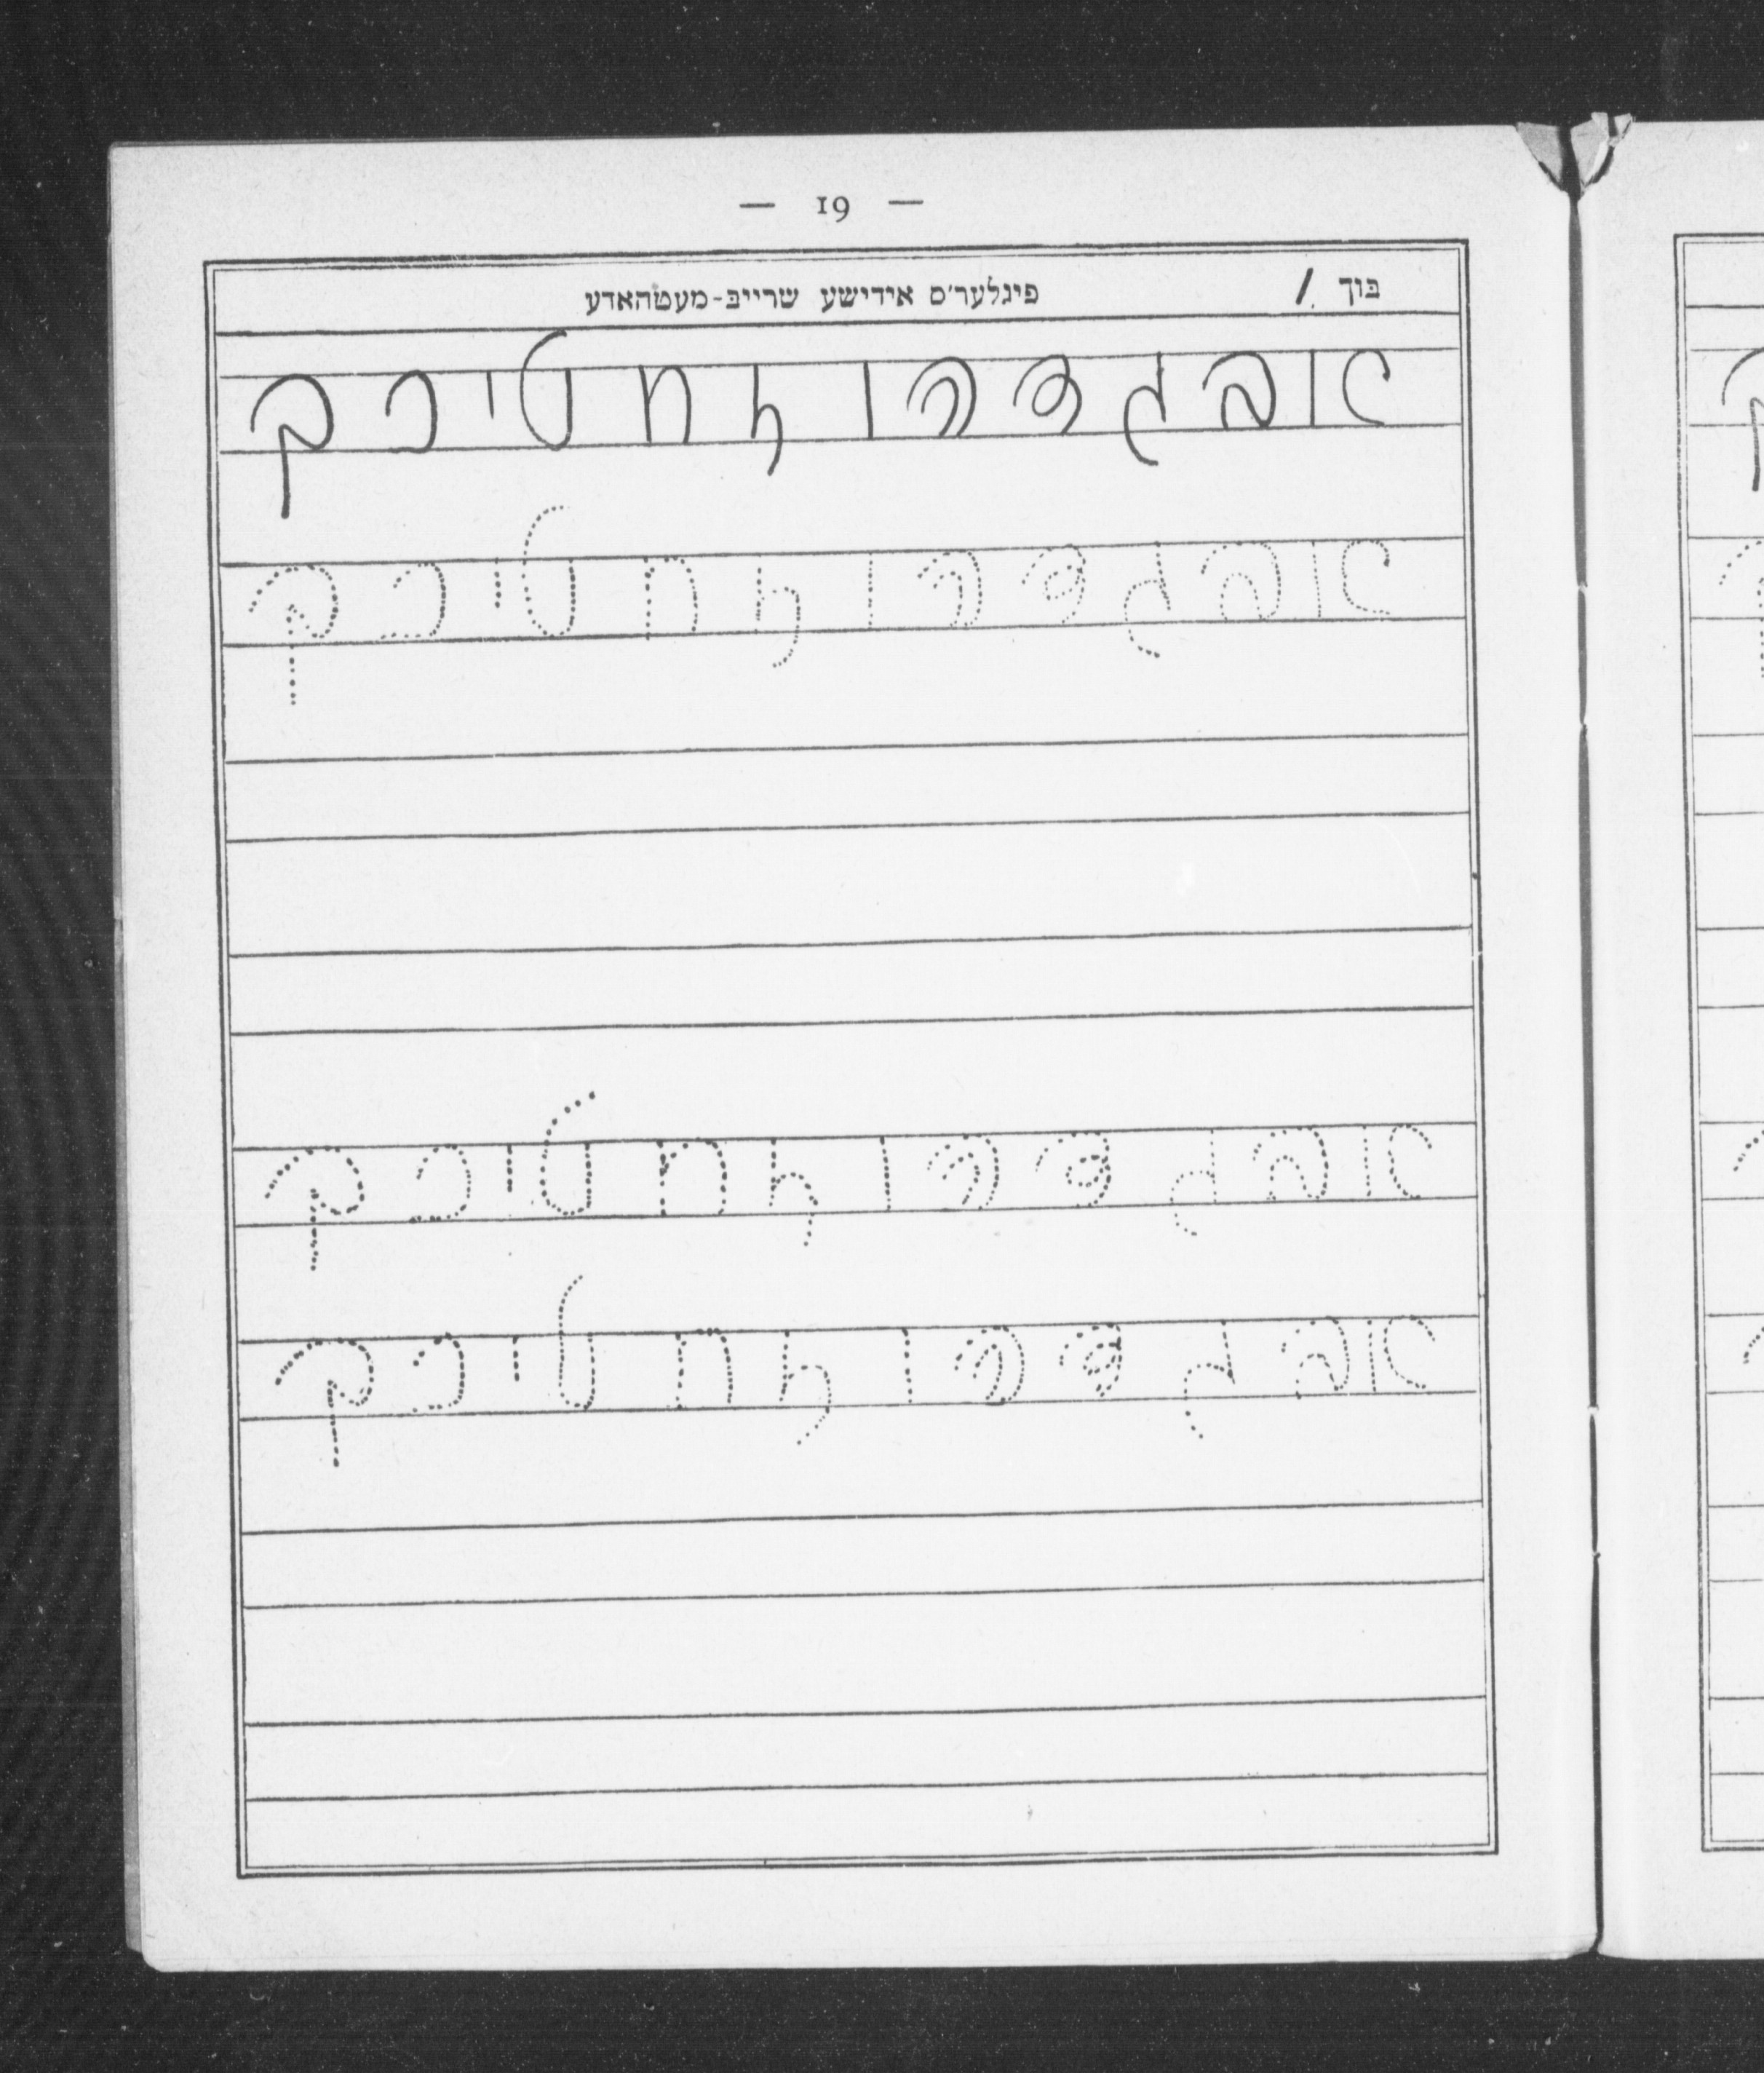 — 19 —
בוך 1. פיגלער'ס אידישע שרייב-מעטהאדע
א ב ג ד ה ו ז ח ט י כ ך
א ב ג ד ה ו ז ח ט י כ ך
א ב ג ד ה ו ז ח ט י כ ך
א ב ג ד ה ו ז ח ט י כ ך